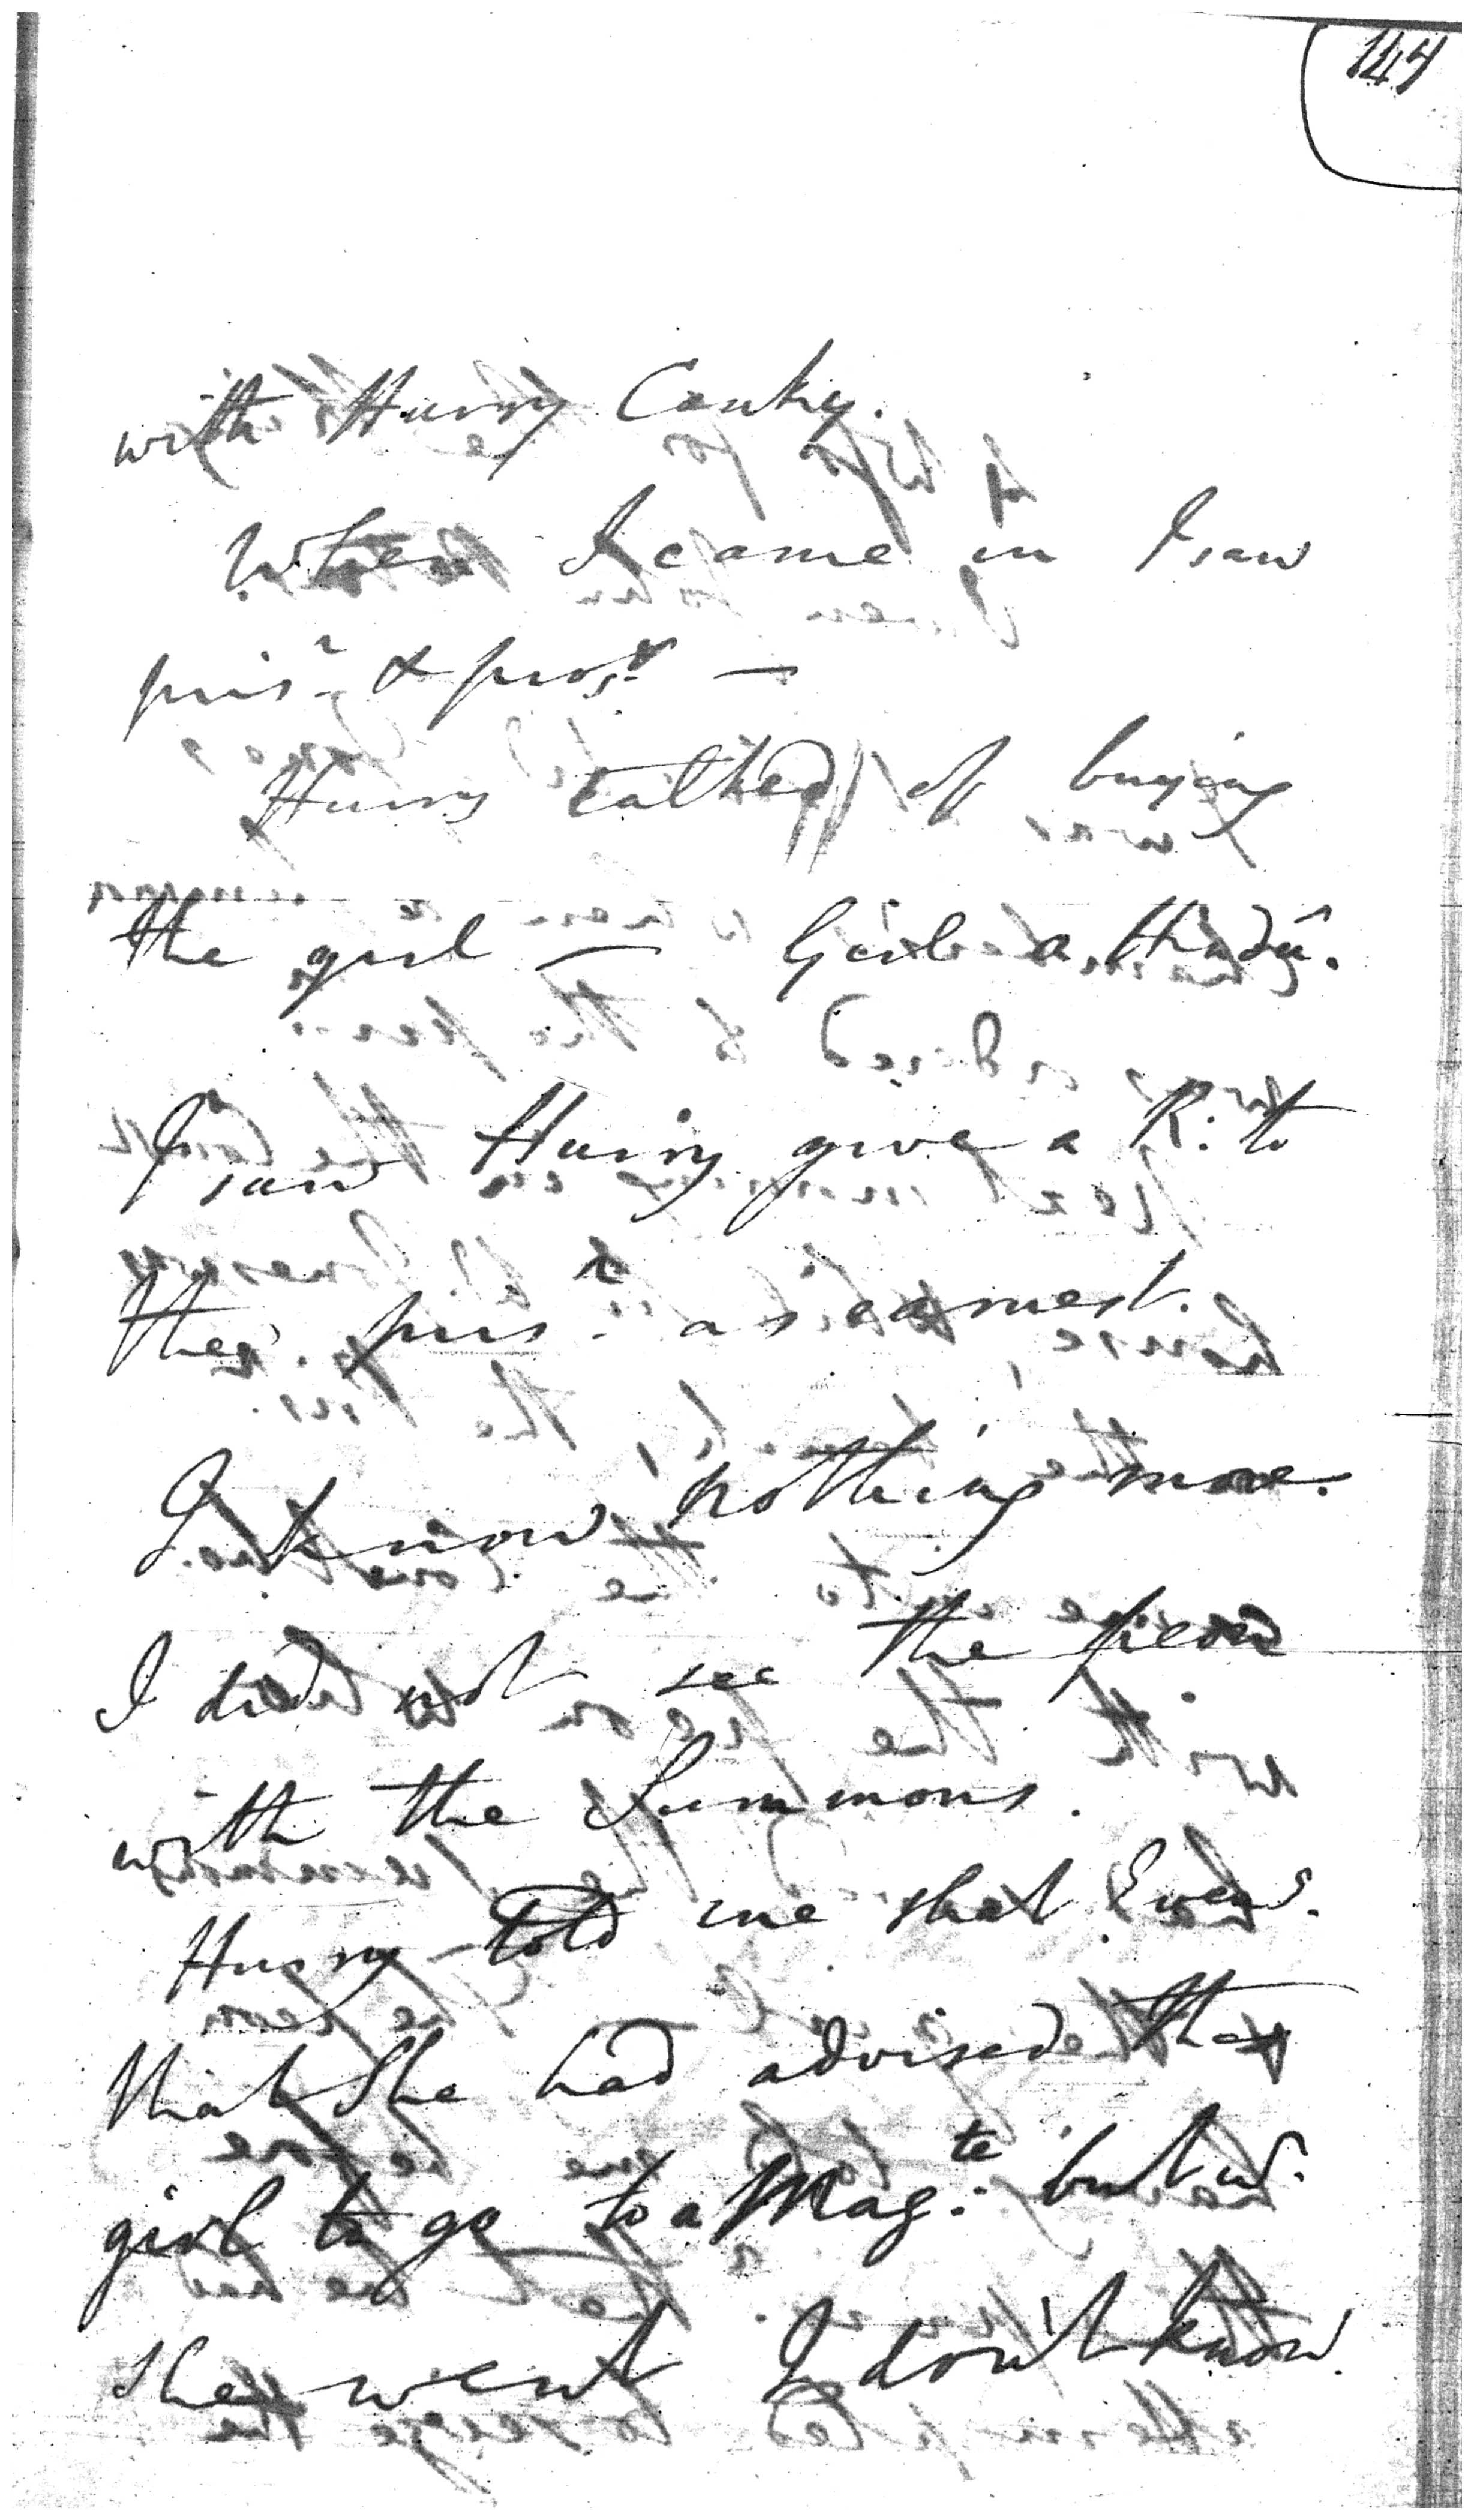 144
with Hurry Canky.
When I came in I saw
pris.r & pros.x —
Hurry talked of buying
the girl — Girl a Hindû.
I saw Hurry give a R: to
the pris.r as earnest.
I know nothing more.
I did not see the peon
with the Summons.
Hurry told me that
that She had advised the
girl to go to a Mag.te but
She went I don't know.